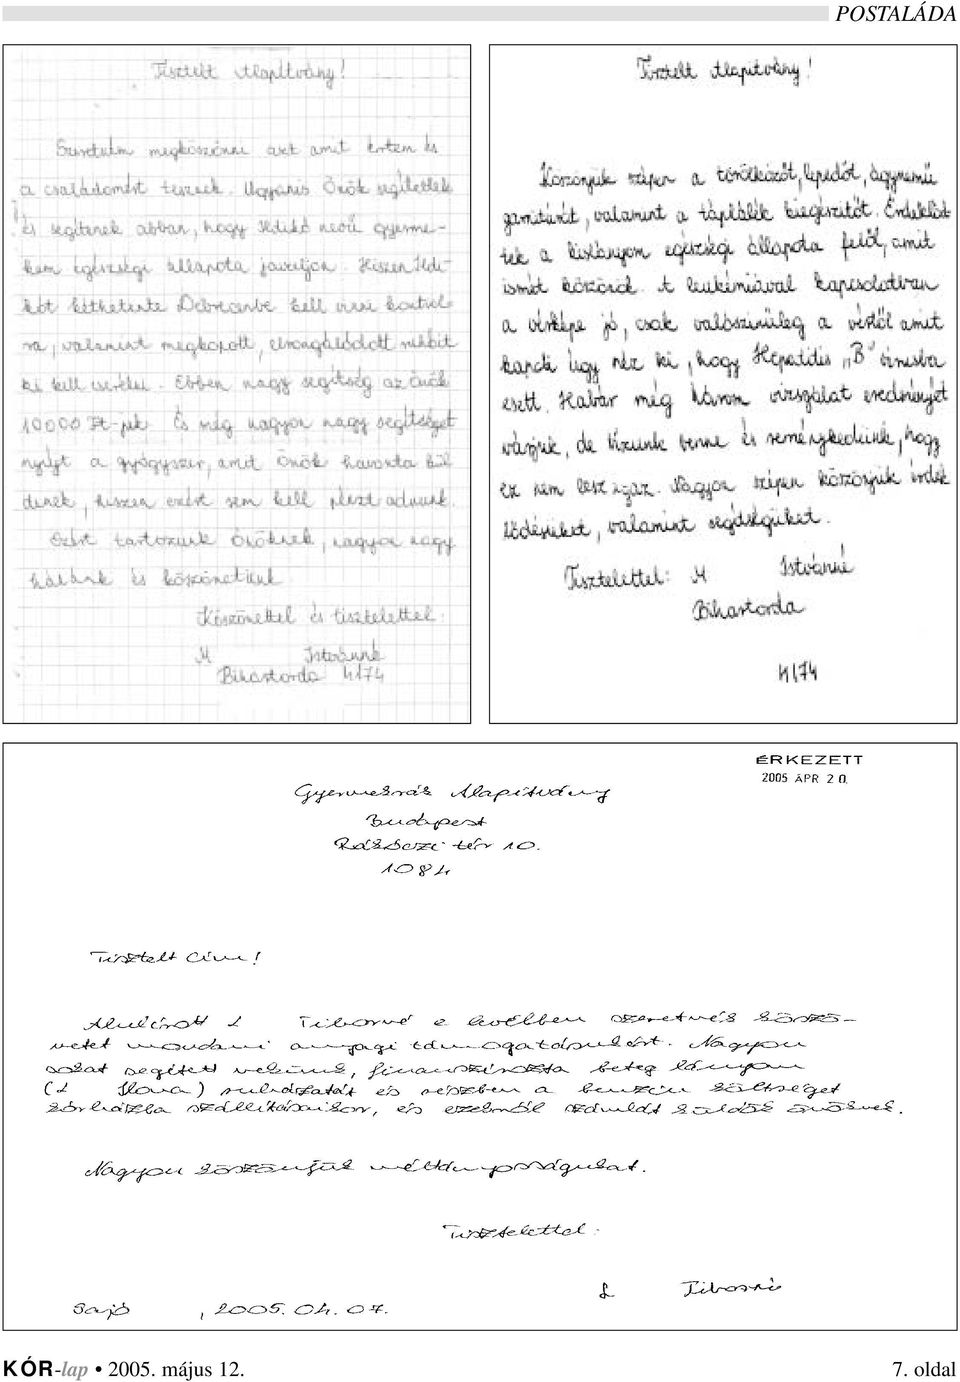 POSTALÁDA
Tisztelt Alapítvány!
Szeretném megköszönni azt amit értem és
a családomért tesznek. Ugyanis Önök segítettek
és segítenek abban, hogy Ildikó nevű gyerme-
kem egészségi állapota javuljon. Hiszen Ildi-
kót kéthetente Debrecenbe kell vinni kontrol-
ra, valamint megkopott, elrongálódott ruháit
ki kell cserélni. Ebben nagy segítség az önök
10000 Ft-juk. És még nagyon nagy segítséget
nyújt a gyógyszer, amit Önök havonta kül
denek, hiszen ezért sem kell pénzt adnunk.
Ezért tartozunk Önöknek, nagyon nagy
hálánk és köszönetünk.
Köszönettel és tisztelettel:
M Istvánné
Bihartorda 4174
Tisztelt Alapítvány!
Köszönjük szépen a törölközőt, lepedőt, ágynemű
garnitúrát, valamint a táplálék kiegészítőt. Érdeklőd-
tek a kislányom egészségi állapota felől, amit
ismét köszönök. A leukémiával kapcsolatban
a vérképe jó, csak valószinűleg a vértől amit
kapott úgy néz ki, hogy Hepatitis „B" vírusba
esett. Habár még három vizsgálat eredményét
várjuk, de bízunk benne és reménykedünk, hogy
ez nem lesz igaz. Nagyon szépen köszönjük érdek
lődésüket, valamint segítségüket.
Tisztelettel: M Istvánné
Bihartorda
4174
ÉRKEZETT
2005 ÁPR 20.
Gyermekrák Alapítvány
Budapest
Rákóczi tér 10.
1084
Tisztelt Cím!
Alulírott L Tiborné e levélben szeretnék köszö-
netet mondani anyagi támogatásukért. Nagyon
sokat segített nekünk, finanszírozta beteg lányom
(L Ilona) ruházatát és részben a benzin költséget
kórházba szállításakor, és ezekről számlát küldök önöknek.
Nagyon köszönjük méltányosságukat.
Tisztelettel:
L Tiborné
Sajó , 2005. 04. 07.
KÓR-lap • 2005. május 12.
7. oldal